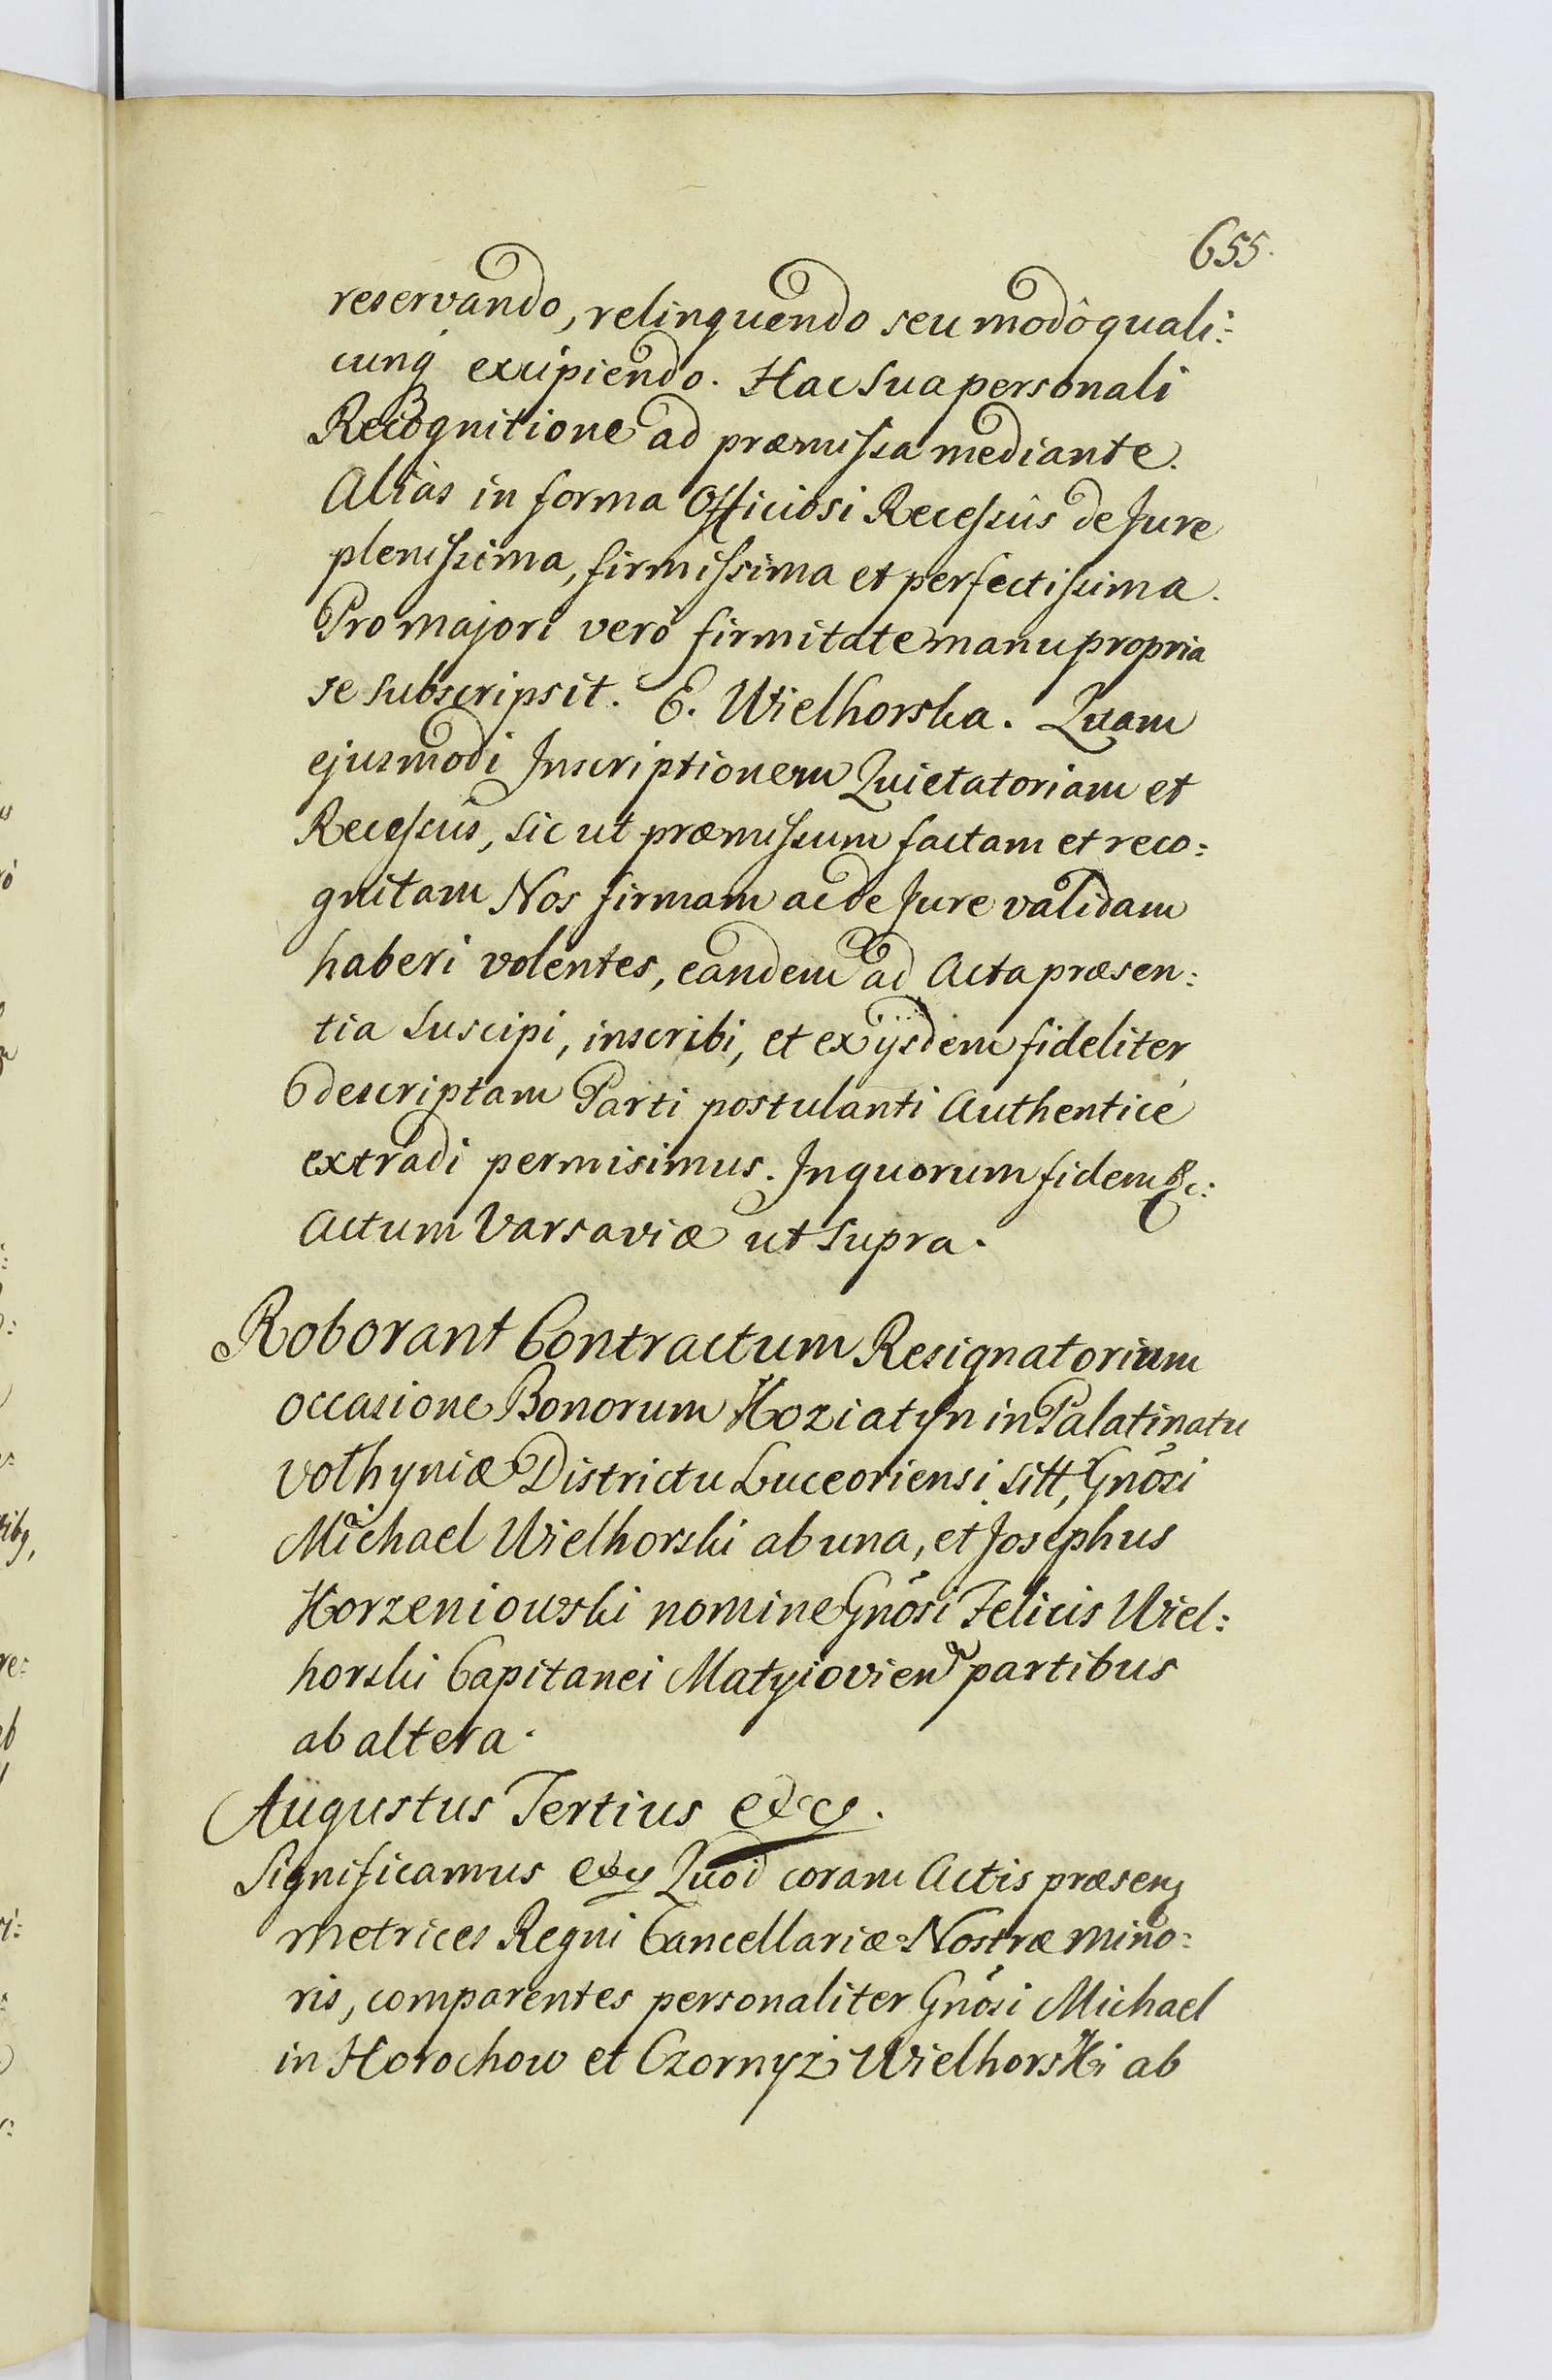 655.
reservando, relinquendo seu modô quali:
cunq excipiendo. Hac sua personali
Recognitione ad præmissa mediante.
Aliàs in forma Officiosi Recessûs de Jure
plenissima, firmissima et perfectissima.
Pro majori verò firmitate manu propria
se subscripsit. E. Wielhorska. Quam
ejusmodi Inscriptionem Quietatoriam et
Recessûs, sic ut præmissum factam et reco:
gnitam Nos firmam ac de Jure validam
haberi volentes, eandem ad Acta præsen:
tia suscipi, inscribi, et ex ijsdem fideliter
descriptam Parti postulanti Authenticé
extradi permisimus. In quorum fidem &c:
Actum Varsaviæ ut supra.
Roborant Contractum Resignatorium
occasione Bonorum Koziatyn in Palatinatu
Volhyniæ Districtu Luceoriensi sitt, Gnõsi
Michael Wielhorski ab una, et Josephus
Korzeniowski nomine Gnõsi Felicis Wiel:
horski Capitanei Matyiovien partibus
ab altera.
Augustus Tertius &c.
Significamus &c Quod coram Actis præsen
Metrices Regni Cancellariæ Nostræ Mino:
ris, comparentes personaliter Gnõsi Michael
in Horochow et Czornyż Wielhorski ab